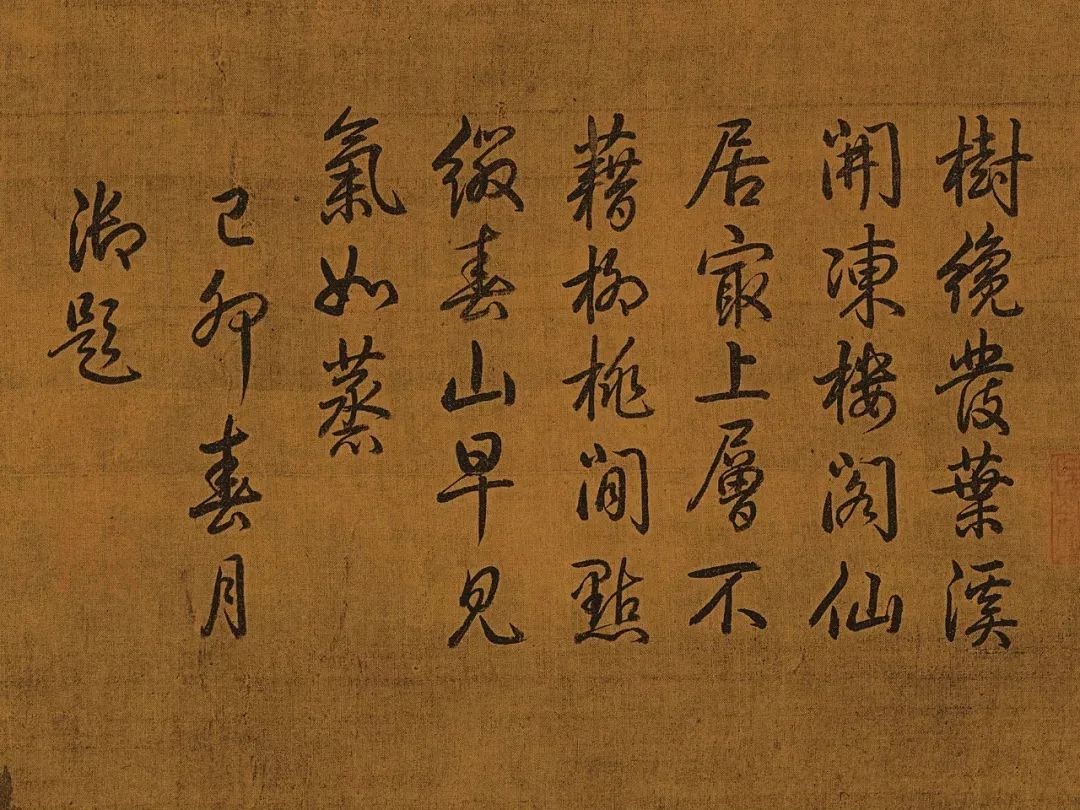 樹纔發葉溪
開凍樓閣仙
居最上層不
藉栁桃閒點
綴春山早見
氣如蒸
己卯春月
御題